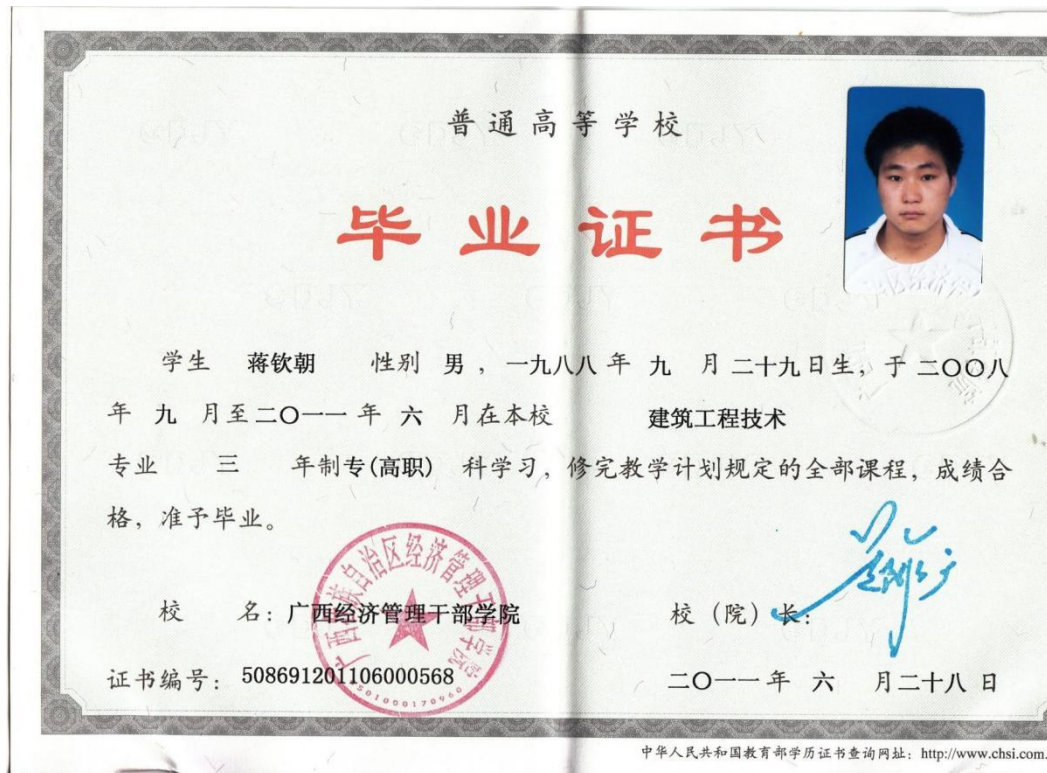 普通高等学校
毕业证书
学生 蒋钦朝 性别 男，一九八八年 九 月二十九日生，于二〇〇八
年 九 月至二〇一一年 六 月在本校 建筑工程技术
专业 三 年制专(高职) 科学习，修完教学计划规定的全部课程，成绩合
格，准予毕业。
广西壮族自治区经济管理干部学院
校 名：广西经济管理干部学院 校（院）长：
证书编号：508691201106000568 二〇一一年 六 月二十八日
4501000170960
中华人民共和国教育部学历证书查询网址：http://www.chsi.com.